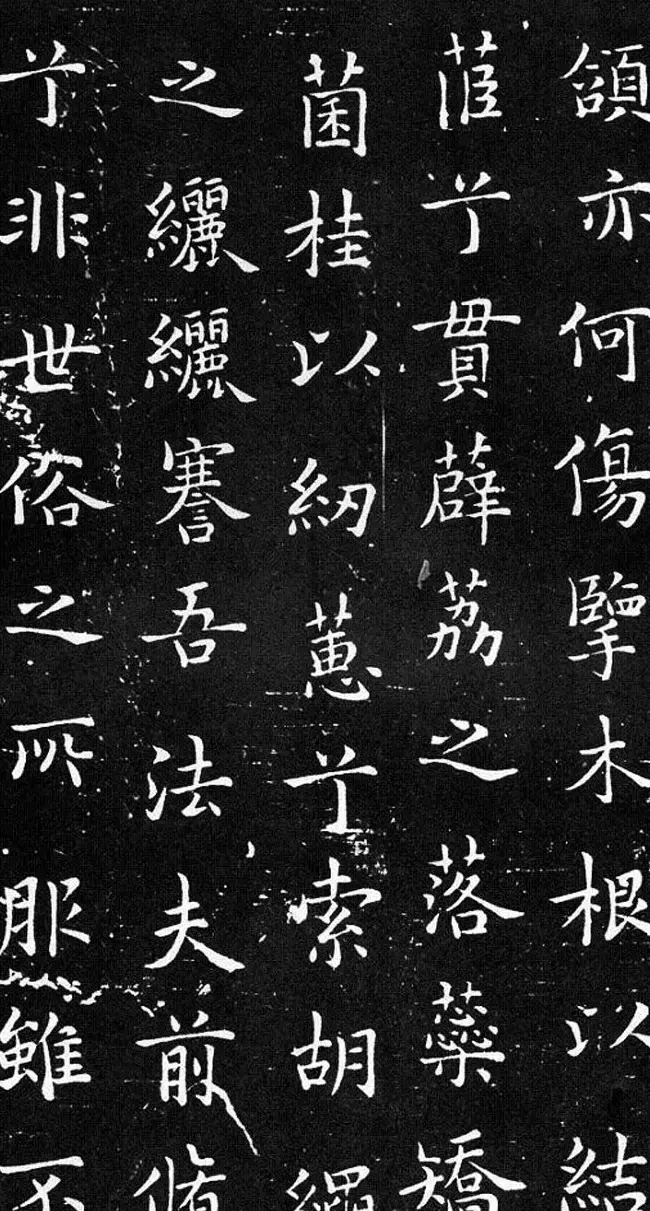 頷亦何傷擥木根以結
茝兮貫薜荔之落蘂矯
菌桂以紉蕙兮索胡繩
之纚纚謇吾法夫前脩
兮非世俗之所服雖不